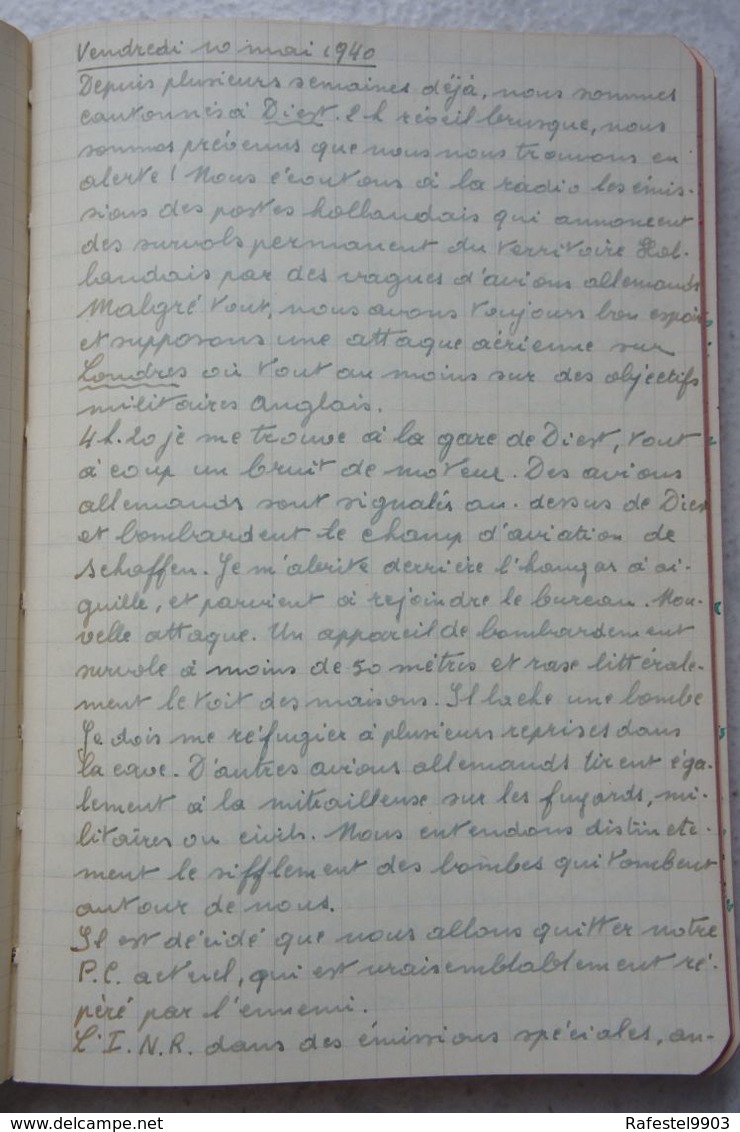 Vendredi 10 mai 1940
Depuis plusieurs semaines déjà, nous sommes
cantonnés à Diest. 2 h réveil brusque, nous
sommes prévenus que nous nous trouvons en
alerte ! Nous écoutons à la radio les émis-
sions des postes hollandais qui annoncent
des survols permanent du territoire Hol-
landais par des vagues d'avions allemands
Malgré tout, nous avons toujours bon espoir
et supposons une attaque aérienne sur
Londres ou tout au moins sur des objectifs
militaires Anglais.
4 h. 20 je me trouve à la gare de Diest, tout
à coup un bruit de moteur. Des avions
allemands sont signalés au-dessus de Diest
et bombardent le champ d'aviation de
Schaffen. Je m'abrite derrière l'hangar à ai-
guille, et parvient à rejoindre le bureau. Nou-
velle attaque. Un appareil de bombardement
survole à moins de 50 mètres et rase littérale-
ment le toit des maisons. Il lache une bombe
Je dois me réfugier à plusieurs reprises dans
la cave. D'autres avions allemands tirent éga-
lement à la mitrailleuse sur les fuyards, mi-
litaires ou civils. Nous entendons distincte-
ment le sifflement des bombes qui tombent
autour de nous.
Il est décidé que nous allons quitter notre
P.C. actuel, qui est vraisemblablement ré-
péré par l'ennemi.
L'I.N.R. dans des émissions spéciales, an-
www.delcampe.net
Rafestel9903